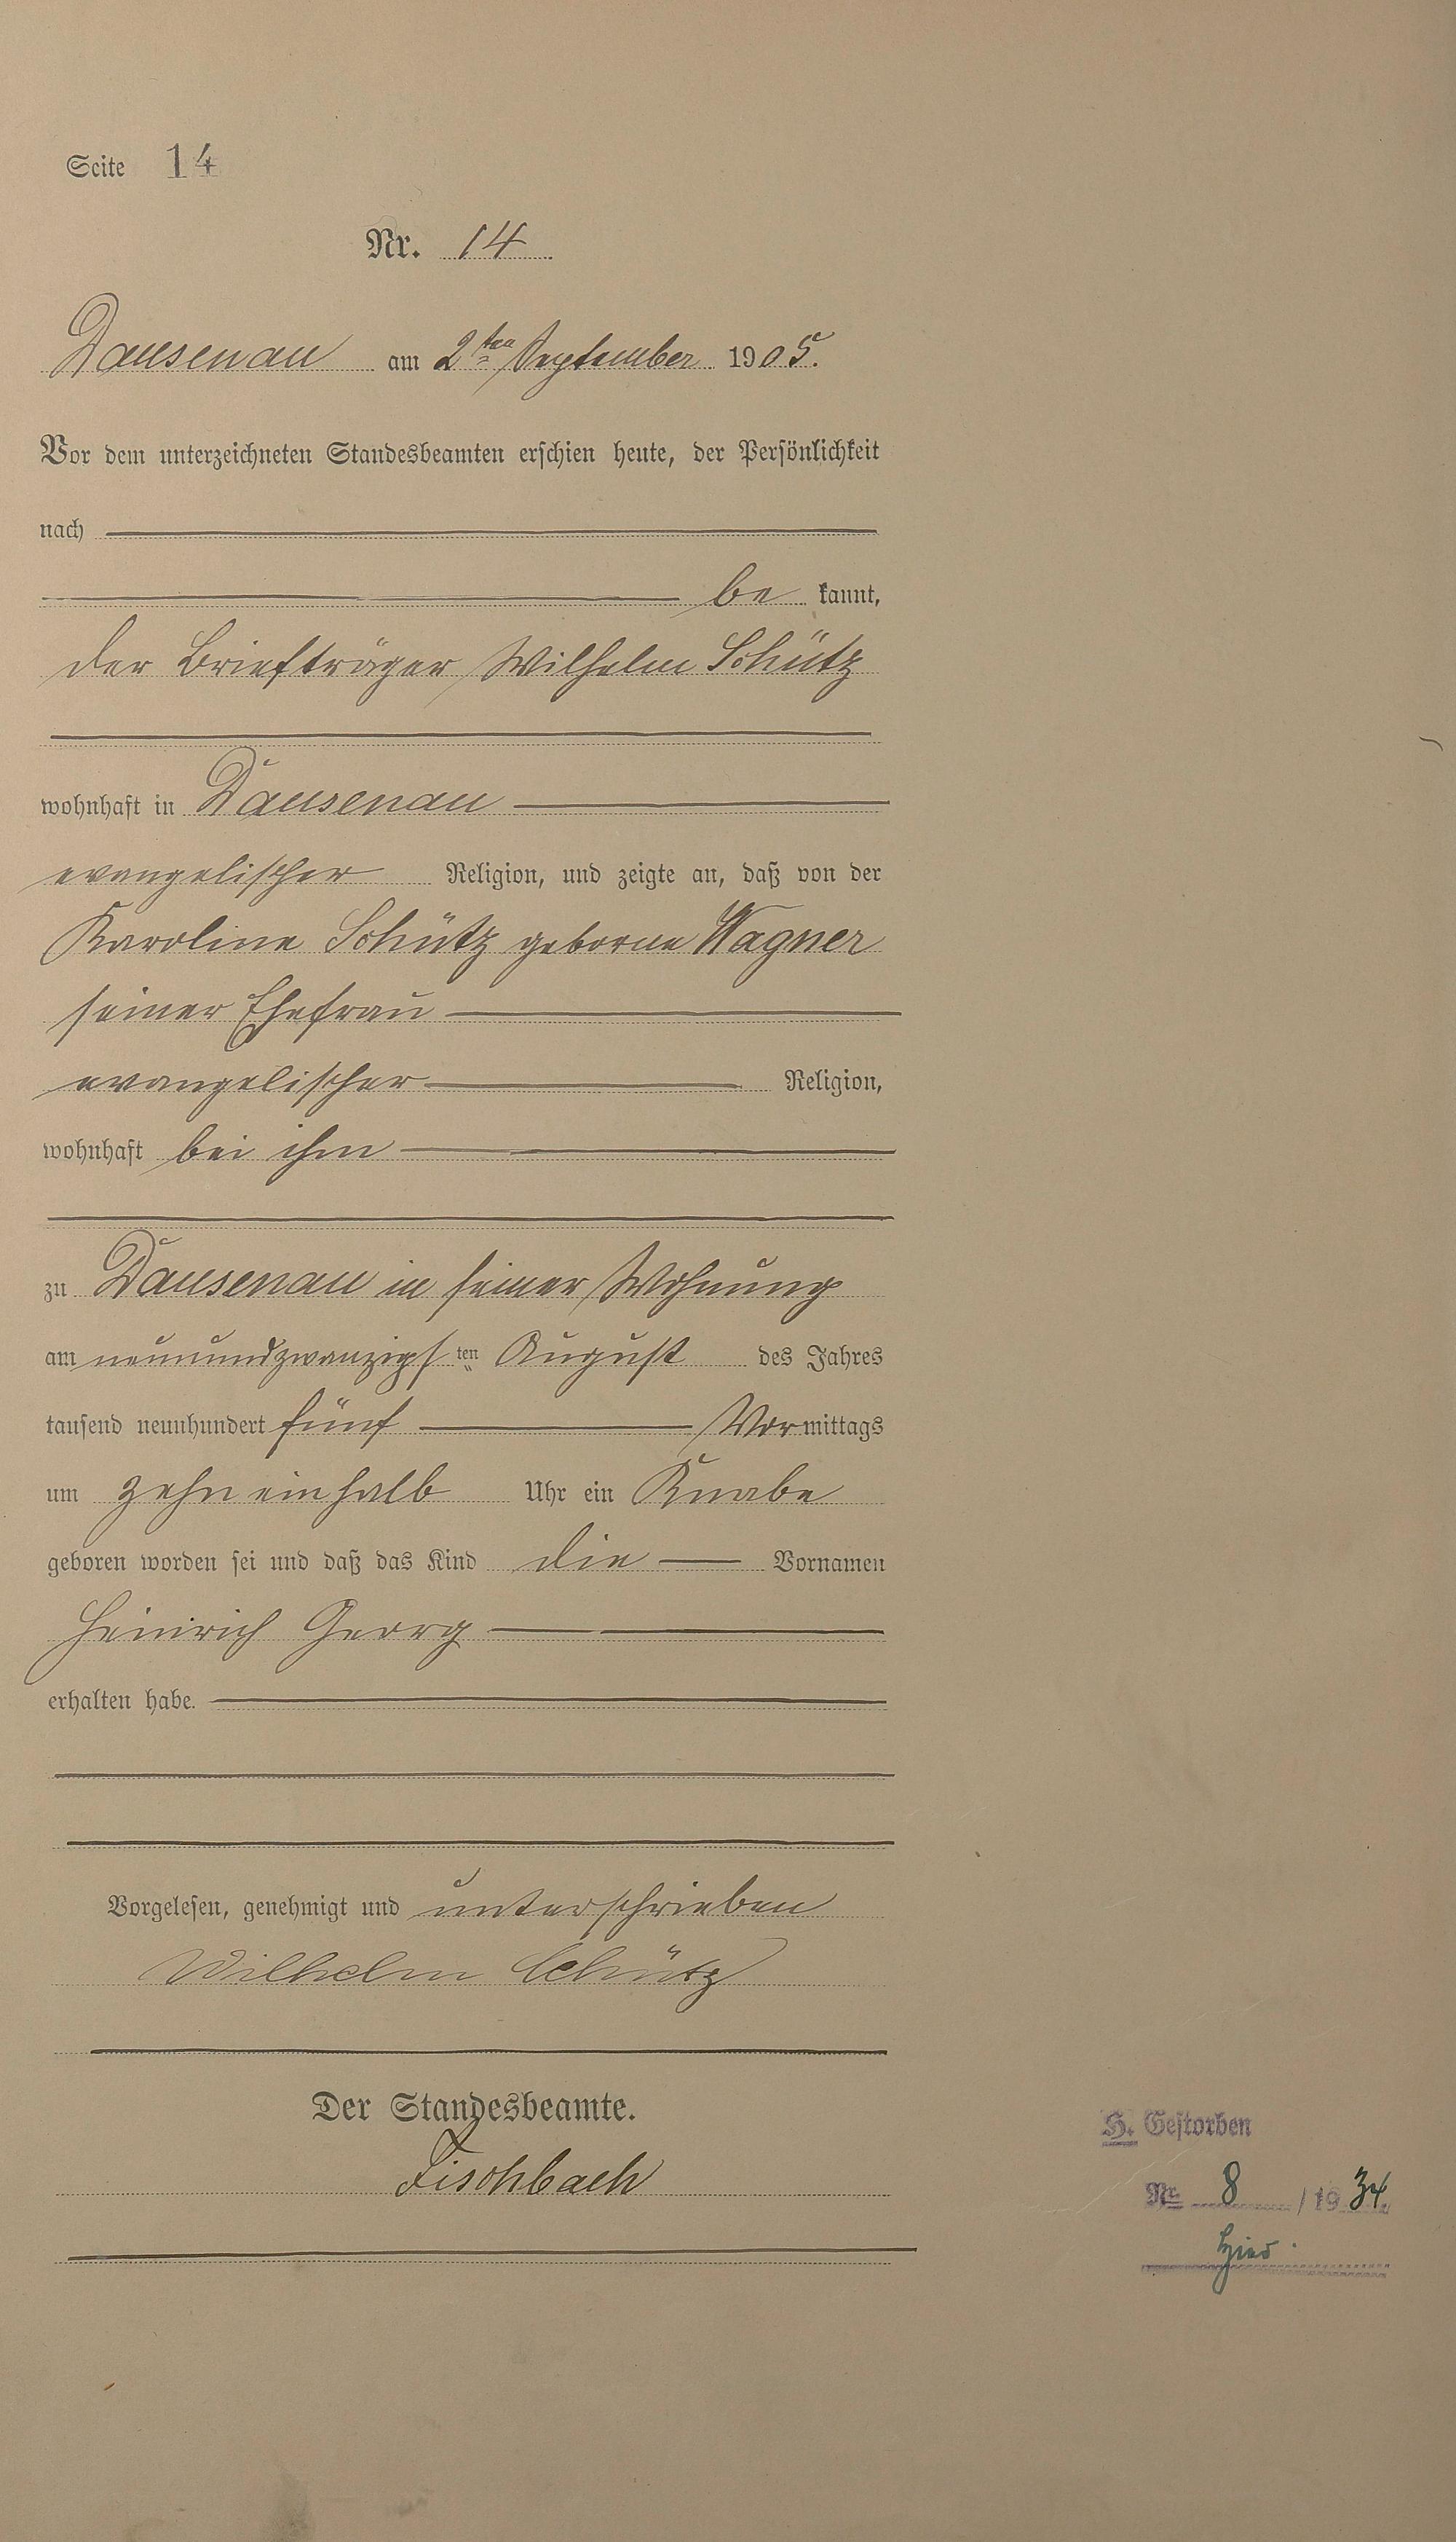 Seite 14
Nr. 14
Dausenau am 2ten September 1905.
Vor dem unterzeichneten Standesbeamten erschien heute, der Persönlichkeit
nach
be kannt,
der Briefträger Wilhelm Schütz
wohnhaft in Dausenau
evangelischer Religion, und zeigte an, daß von der
Karoline Schütz geborne Wagner
seiner Ehefrau
evangelischer Religion,
wohnhaft bei ihm
zu Dausenau in seiner Wohnung
am neunundzwanzigsten August des Jahres
tausend neunhundert fünf Vormittags
um zehn einhalb Uhr ein Knabe
geboren worden sei und daß das Kind die Vornamen
Heinrich Georg
erhalten habe.
Vorgelesen, genehmigt und unterschrieben
Wilhelm Schütz
Der Standesbeamte.
Fischbach
H. Gestorben
Nr. 8 /1934.
hier.